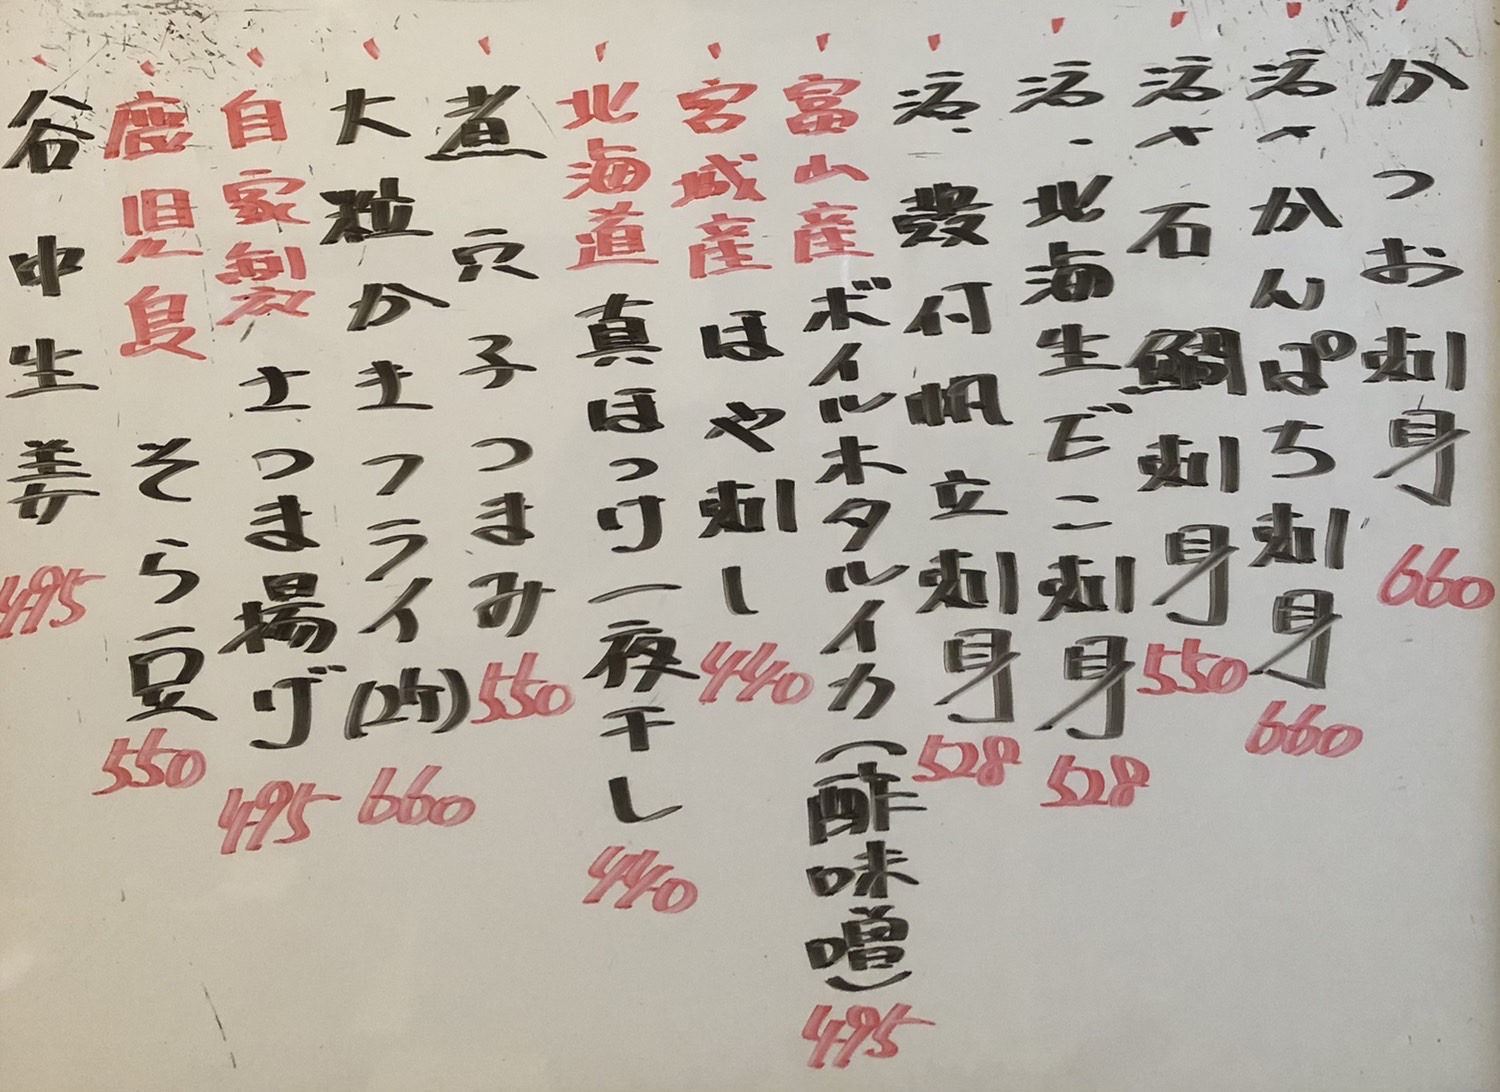 かつお刺身 660
活〆かんぱち刺身 660
活〆石鯛刺身 550
活〆北海生ダコ刺身 528
活〆殻付帆立刺身 528
富山産ボイルホタルイカ(酢味噌) 495
宮城産ほや刺し 440
北海道真ほっけ一夜干し 440
煮穴子つまみ 550
大粒かきフライ(2ケ) 660
自家製さつま揚げ 495
鹿児島そら豆 550
谷中生姜 495